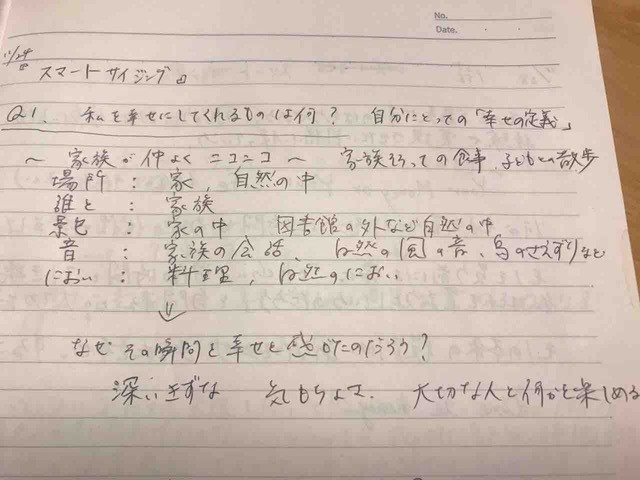 No.
Date.
11/24
スマートサイジング
Q1. 私を幸せにしてくれるものは何? 自分にとっての「幸せの定義」
~ 家族が仲よくニコニコ ~ 家族そろっての食事、子どもとの散歩
場所 : 家、自然の中
誰と : 家族
景色 : 家の中 図書館の外など自然の中
音 : 家族の会話、自然の風の音、鳥のさえずりなど
におい : 料理、自然のにおい
↓
なぜその瞬間を幸せと感じたのだろう?
深いきずな 気もちよさ、 大切な人と何かを楽しめる